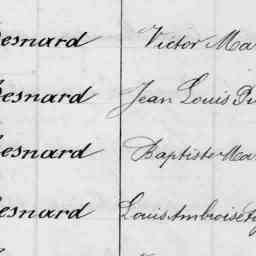 esnard Victor Ma
esnard Jean Louis
esnard Baptiste Ma
esnard Louis Ambroise